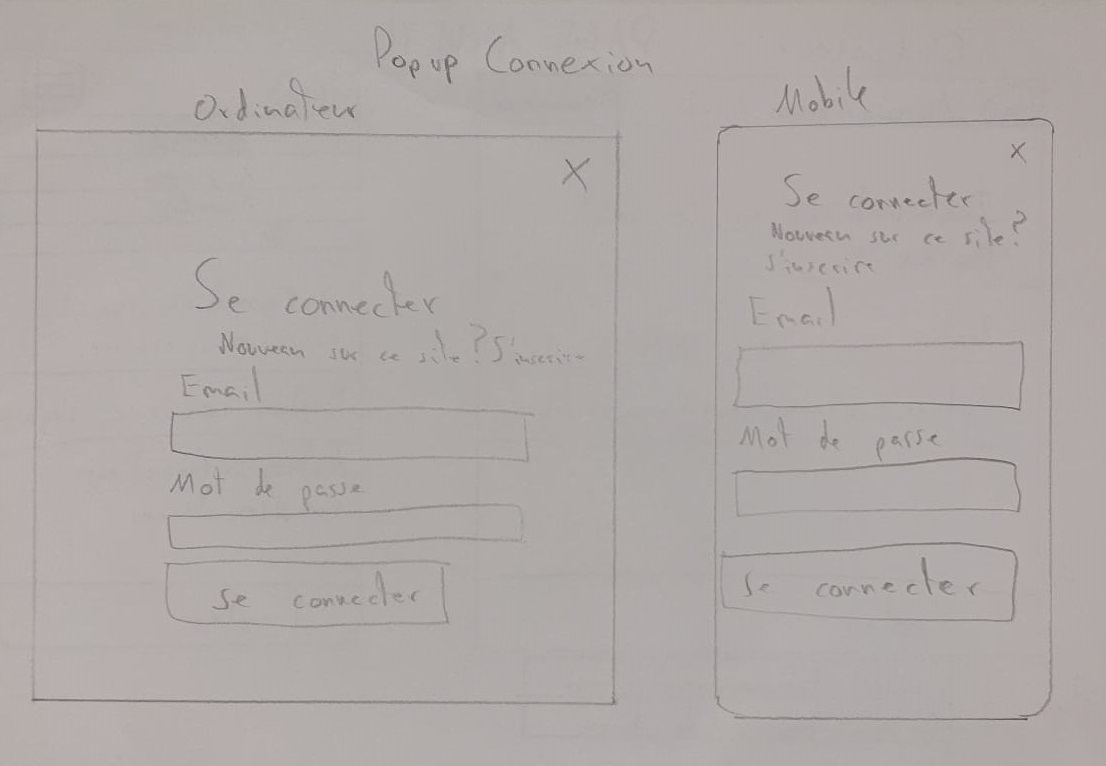 Popup Connexion
Ordinateur
X
Se connecter
Nouveau sur ce site ? S'inscrire
Email
Mot de passe
Se connecter
Mobile
X
Se connecter
Nouveau sur ce site ?
S'inscrire
Email
Mot de passe
Se connecter